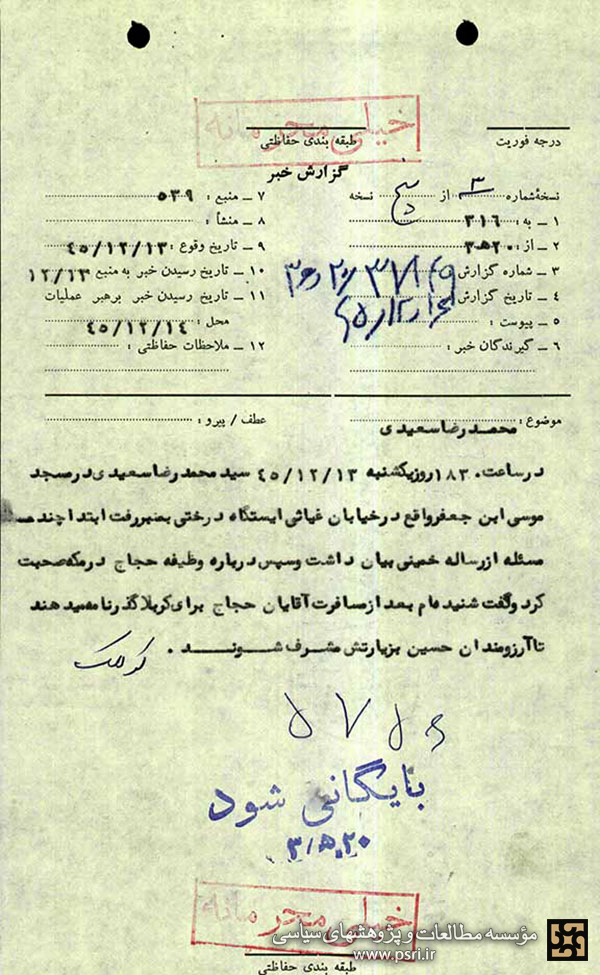 خیلی محرمانه
درجه فوریت
طبقه بندی حفاظتی
گزارش خبر
نسخهٔ شماره ۳ از پنج نسخه
۷ ــ منبع : ۵۳۹
۱ ــ به : ۳۱۶
۸ ــ منشأ :
۲ ــ از : ۲۰ﻫ۳
۹ ــ تاریخ وقوع : ۴۵/۱۲/۱۳
۳ ــ شماره گزارش
۱۰ ــ تاریخ رسیدن خبر به منبع ۱۲/۱۳
۴ ــ تاریخ گزارش
۱۱ ــ تاریخ رسیدن خبر برهبر عملیات
۵ ــ پیوست :
محل : ۴۵/۱۲/۱۴
۶ ــ گیرندگان خبر :
۱۲ ــ ملاحظات حفاظتی :
موضوع : محمدرضاسعیدی
عطف / پیرو :
درساعت ۱۸۳۰ روزیکشنبه ۴۵/۱۲/۱۳ سید محمدرضاسعیدی درمسجد
موسی ابن جعفرواقع درخیابان غیاثی ایستگاه درختی بمنبررفت ابتدا چند
مسئله ازرساله خمینی بیان داشت وسپس درباره وظیفه حجاج درمکه صحبت
کرد وگفت شنیده ام بعد ازمسافرت آقایان حجاج برای کربلا گذرنامه میدهند
تاآرزومندان حسین بزیارتش مشرف شوند .
بایگانی شود
۲۰ﻫ۳
خیلی محرمانه
مؤسسه مطالعات و پژوهشهای سیاسی
www.psri.ir
طبقه بندی حفاظتی